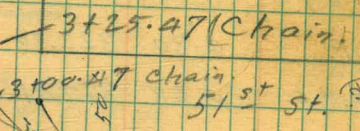 3+25.47 Chain.
3+00.47 Chain.
50
51st St.